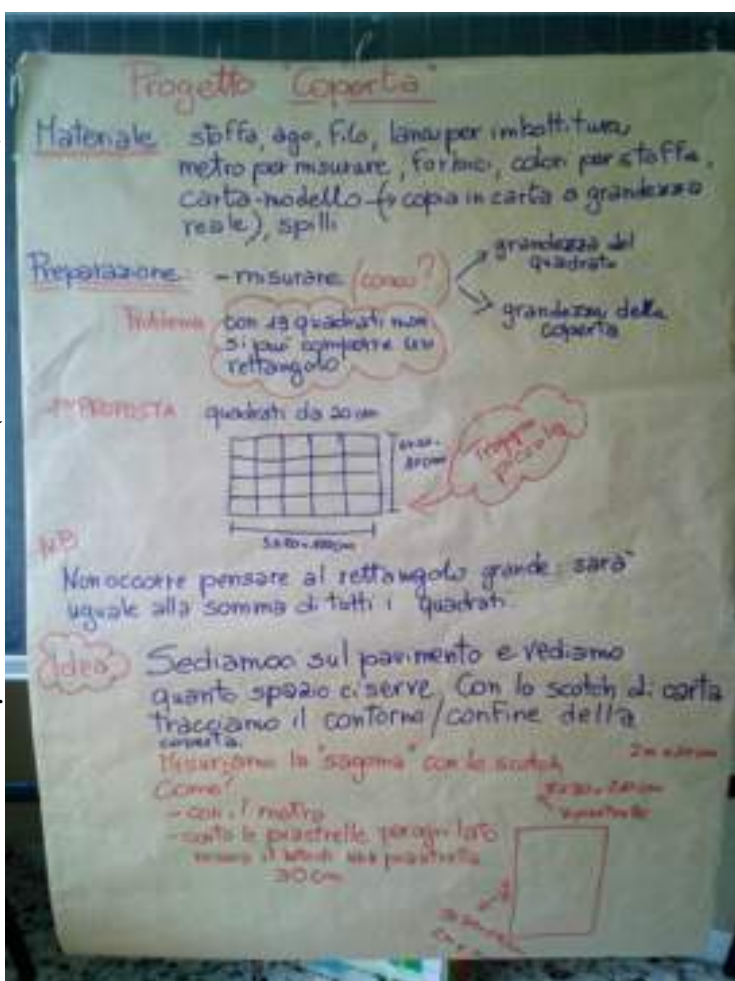 Progetto "Coperta"
Materiale stoffa, ago, filo, lana per imbottitura,
metro per misurare, forbici, colori per stoffa,
carta-modello (→ copia in carta a grandezza
reale), spilli
Preparazione: - misurare (come?)
grandezza del
quadrato
grandezza della
coperta
Problema
con 19 quadrati non
si può comporre un
rettangolo
1ª PROPOSTA quadrati da 20 cm
Troppo
piccola
5x20=100cm
NB
Non occorre pensare al rettangolo grande: sarà
uguale alla somma di tutti i quadrati.
Idea
Sediamoci sul pavimento e vediamo
quanto spazio ci serve. Con lo scotch di carta
tracciamo il contorno/confine della
coperta.
Misuriamo la "sagoma" con lo scotch
Come?
- con il metro
- conto le piastrelle per ogni lato
piastrella
30 cm